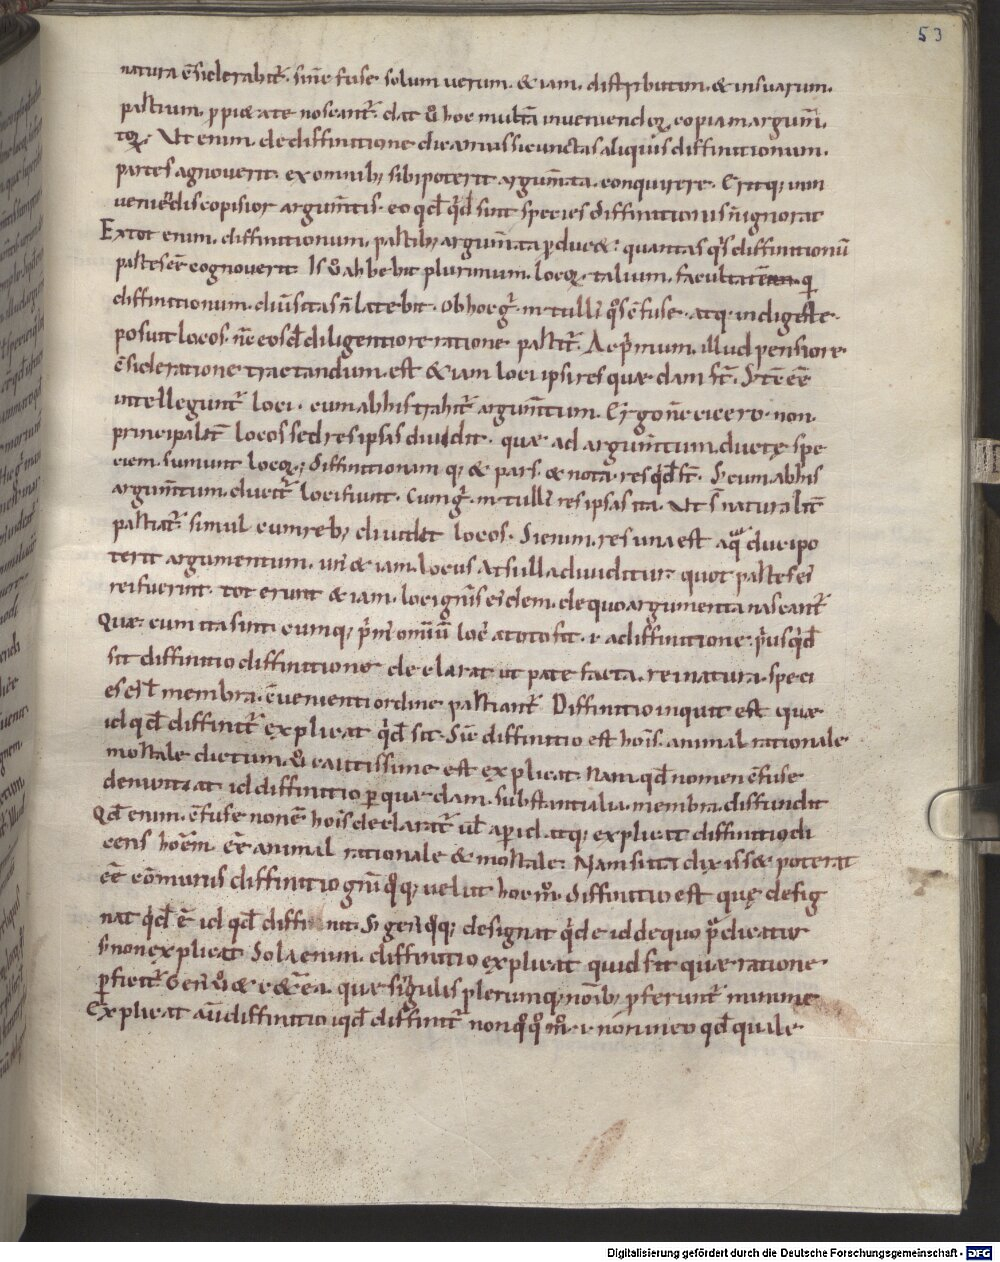 53
natura c̄siderabit̄. sine fuse solum uerum. & iam. distributim. & insuarum.
partium. ppi&ate noscant̄. dat ů hoc multā inueniendoꝝ copiam argum̄
toꝝ. Ut enim. dediffinitione dicamus sicunctas aliquis diffinitionum.
partes agnouerit. exomnibꝫ sibi poterit argum̄ta. conquirere. Eritqꝫ inin
ueniēdis copisior argum̄tis. eo qd̄ qd̄ sint species diffinitionis n̄ ignorat
Ex tot enim. diffinitionum. partibꝫ argum̄ta pduc&. quantas qs diffinitionū
partes ēē cognouerit Is ů abhebit plurimum. locoꝝ. talium. facultatem q
diffinitionum. diuersitas n̄ latebit. Ob hoc ḡ. m. tulli qs c̄fuse. atqꝫ indigeste.
posuit locos. n̄c eosd̄ diligentiore ratione partit̄. Ac primum. illud pensiore
c̄sideratione tractandum. est & iam loci ipsi res quae dam st̄.
intelleguntur loci. cum abhis trahit̄ argum̄tum. Ergo nc̄ cicero. non.
principalit̄ locos sed res ipsas diuidit. quae ad argum̄tum. ducte spe
ciem. sumunt locoꝝ; diffinitionam qꝫ & pars. & nota. res qd̄ st̄. Si cum abhis
argum̄tum. ducit̄ loci fiunt. Cum ḡ. m. tulli res ipsas ita. Ut s natura lit̄
partiat̄ simul cum rebꝫ diuidet locos. Si enim. res una est a qua duci po
terit argumentum. un & iam. locus At si illa diuiditur quot partes ei
rei fuerint. tot erunt & iam. loci gn̄is eisdem. de quo argumenta nascant̄
Quae cum ita sint. cumqꝫ prim omnium loc a toto sit. i. a diffinitione: priusqd̄
sit diffinitio diffinitione declarat ut patefacta. rei natura. speci
es eīd membra. c̄uenienti ordine partiant̄ Diffinitio inquit est quae
id qd̄ diffinit̄ explicat qd̄ sit. Sic̄ diffinitio est hois. animal rationale
mortale dictum. ů cautissime est explicat. Nam. qd̄ nomen c̄fuse
denuntiat id diffinitio p quae dam. substantialia. membra. diffundit
Qd̄ enim. c̄fuse nom̄ hois declarat̄ ul̄ aperid. atqꝫ explicat diffinitio di
cens hoēm. eē animal rationale & mortale. Nam si ita dixiss& poterat
eē cōmunis diffinitio gn̄i qqꝫ uelut hoc m̄. diffinitio est quę desig
nat qd̄ ē id qd̄ diffinit. Si gen qqꝫ designat qd̄ e id de quo p̄dicatur
s non explicat Sola enim. diffinitio explicat quid sit quae ratione
pficit̄ Gen ů & c&ea. quae singulis plerumqꝫ noībꝫ pferunt̄ minime
Explicat aūdiffinitio iqd̄ diffinit̄ non qqo m̄. i. nomineo qd̄ quale
Digitalisierung gefördert durch die Deutsche Forschungsgemeinschaft - DFG